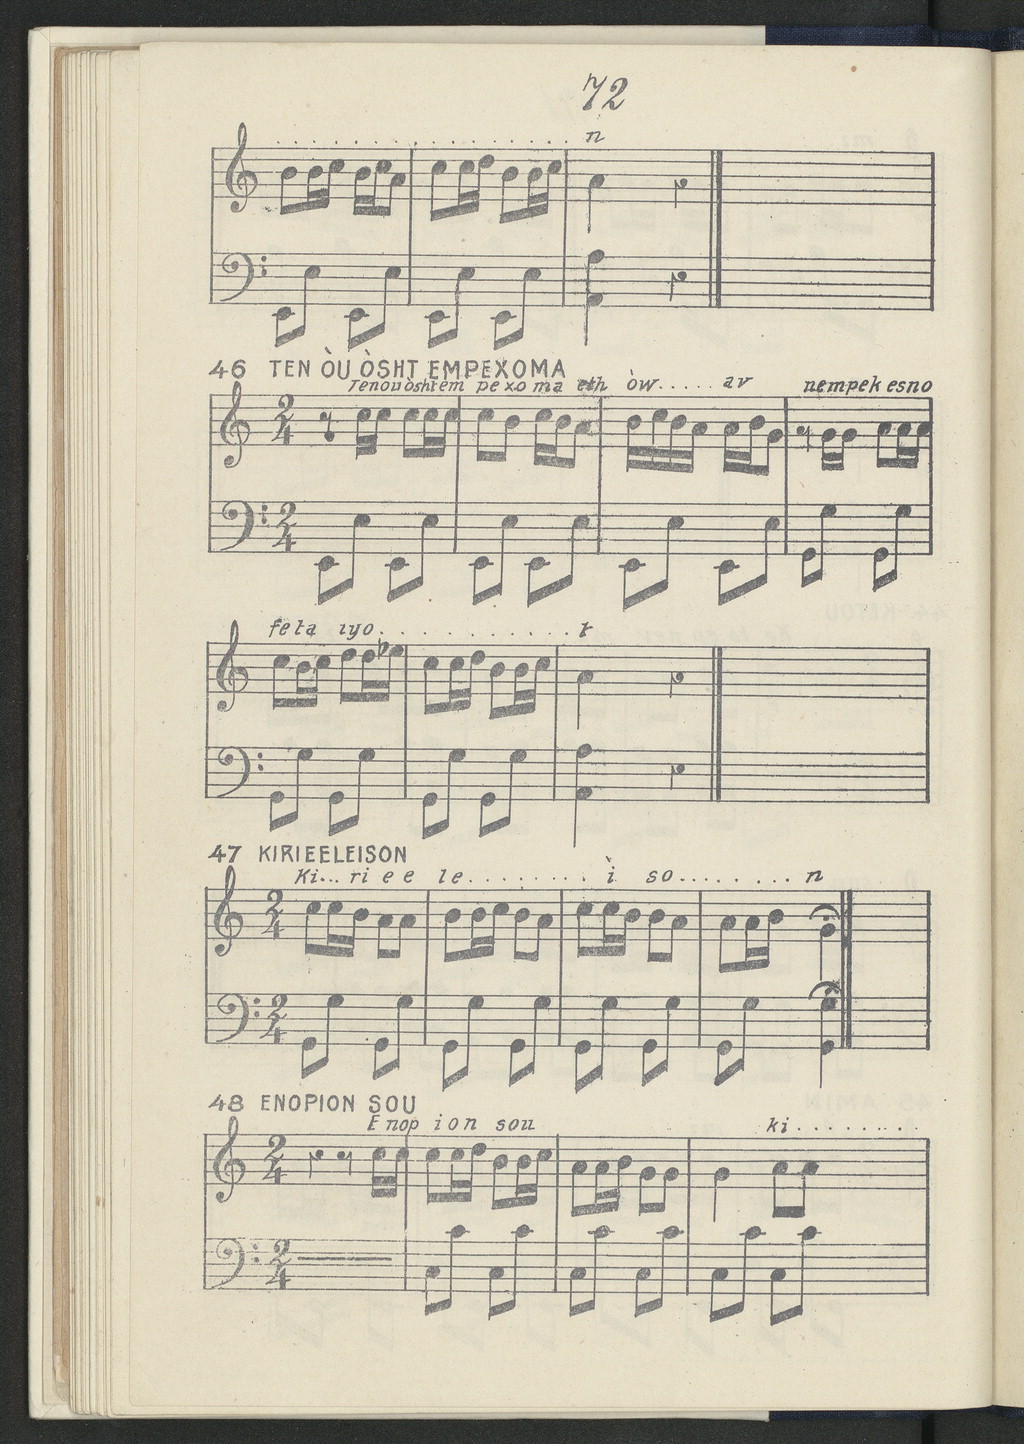 72
. . . . . . . . . . . . . . . . . . . . n
46 TEN ÒU ÒSHT EMPEXOMA
Tenouòshtem pexoma eth òw..... av nempek esno
2/4
2/4
feta iyo. . . . . . . . . . . . t
47 KIRIEELEISON
Ki... ri e e le......... ì so......... n
2/4
2/4
48 ENOPION SOU
Enop ion sou ki........
2/4
2/4